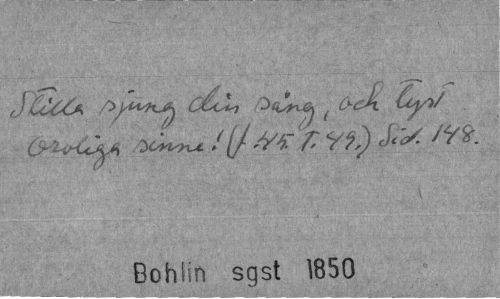 Stilla sjung din sång, och tyst
Oroliga sinne! (f. 45. T. 49.) Sid. 148.
Bohlin sgst 1850